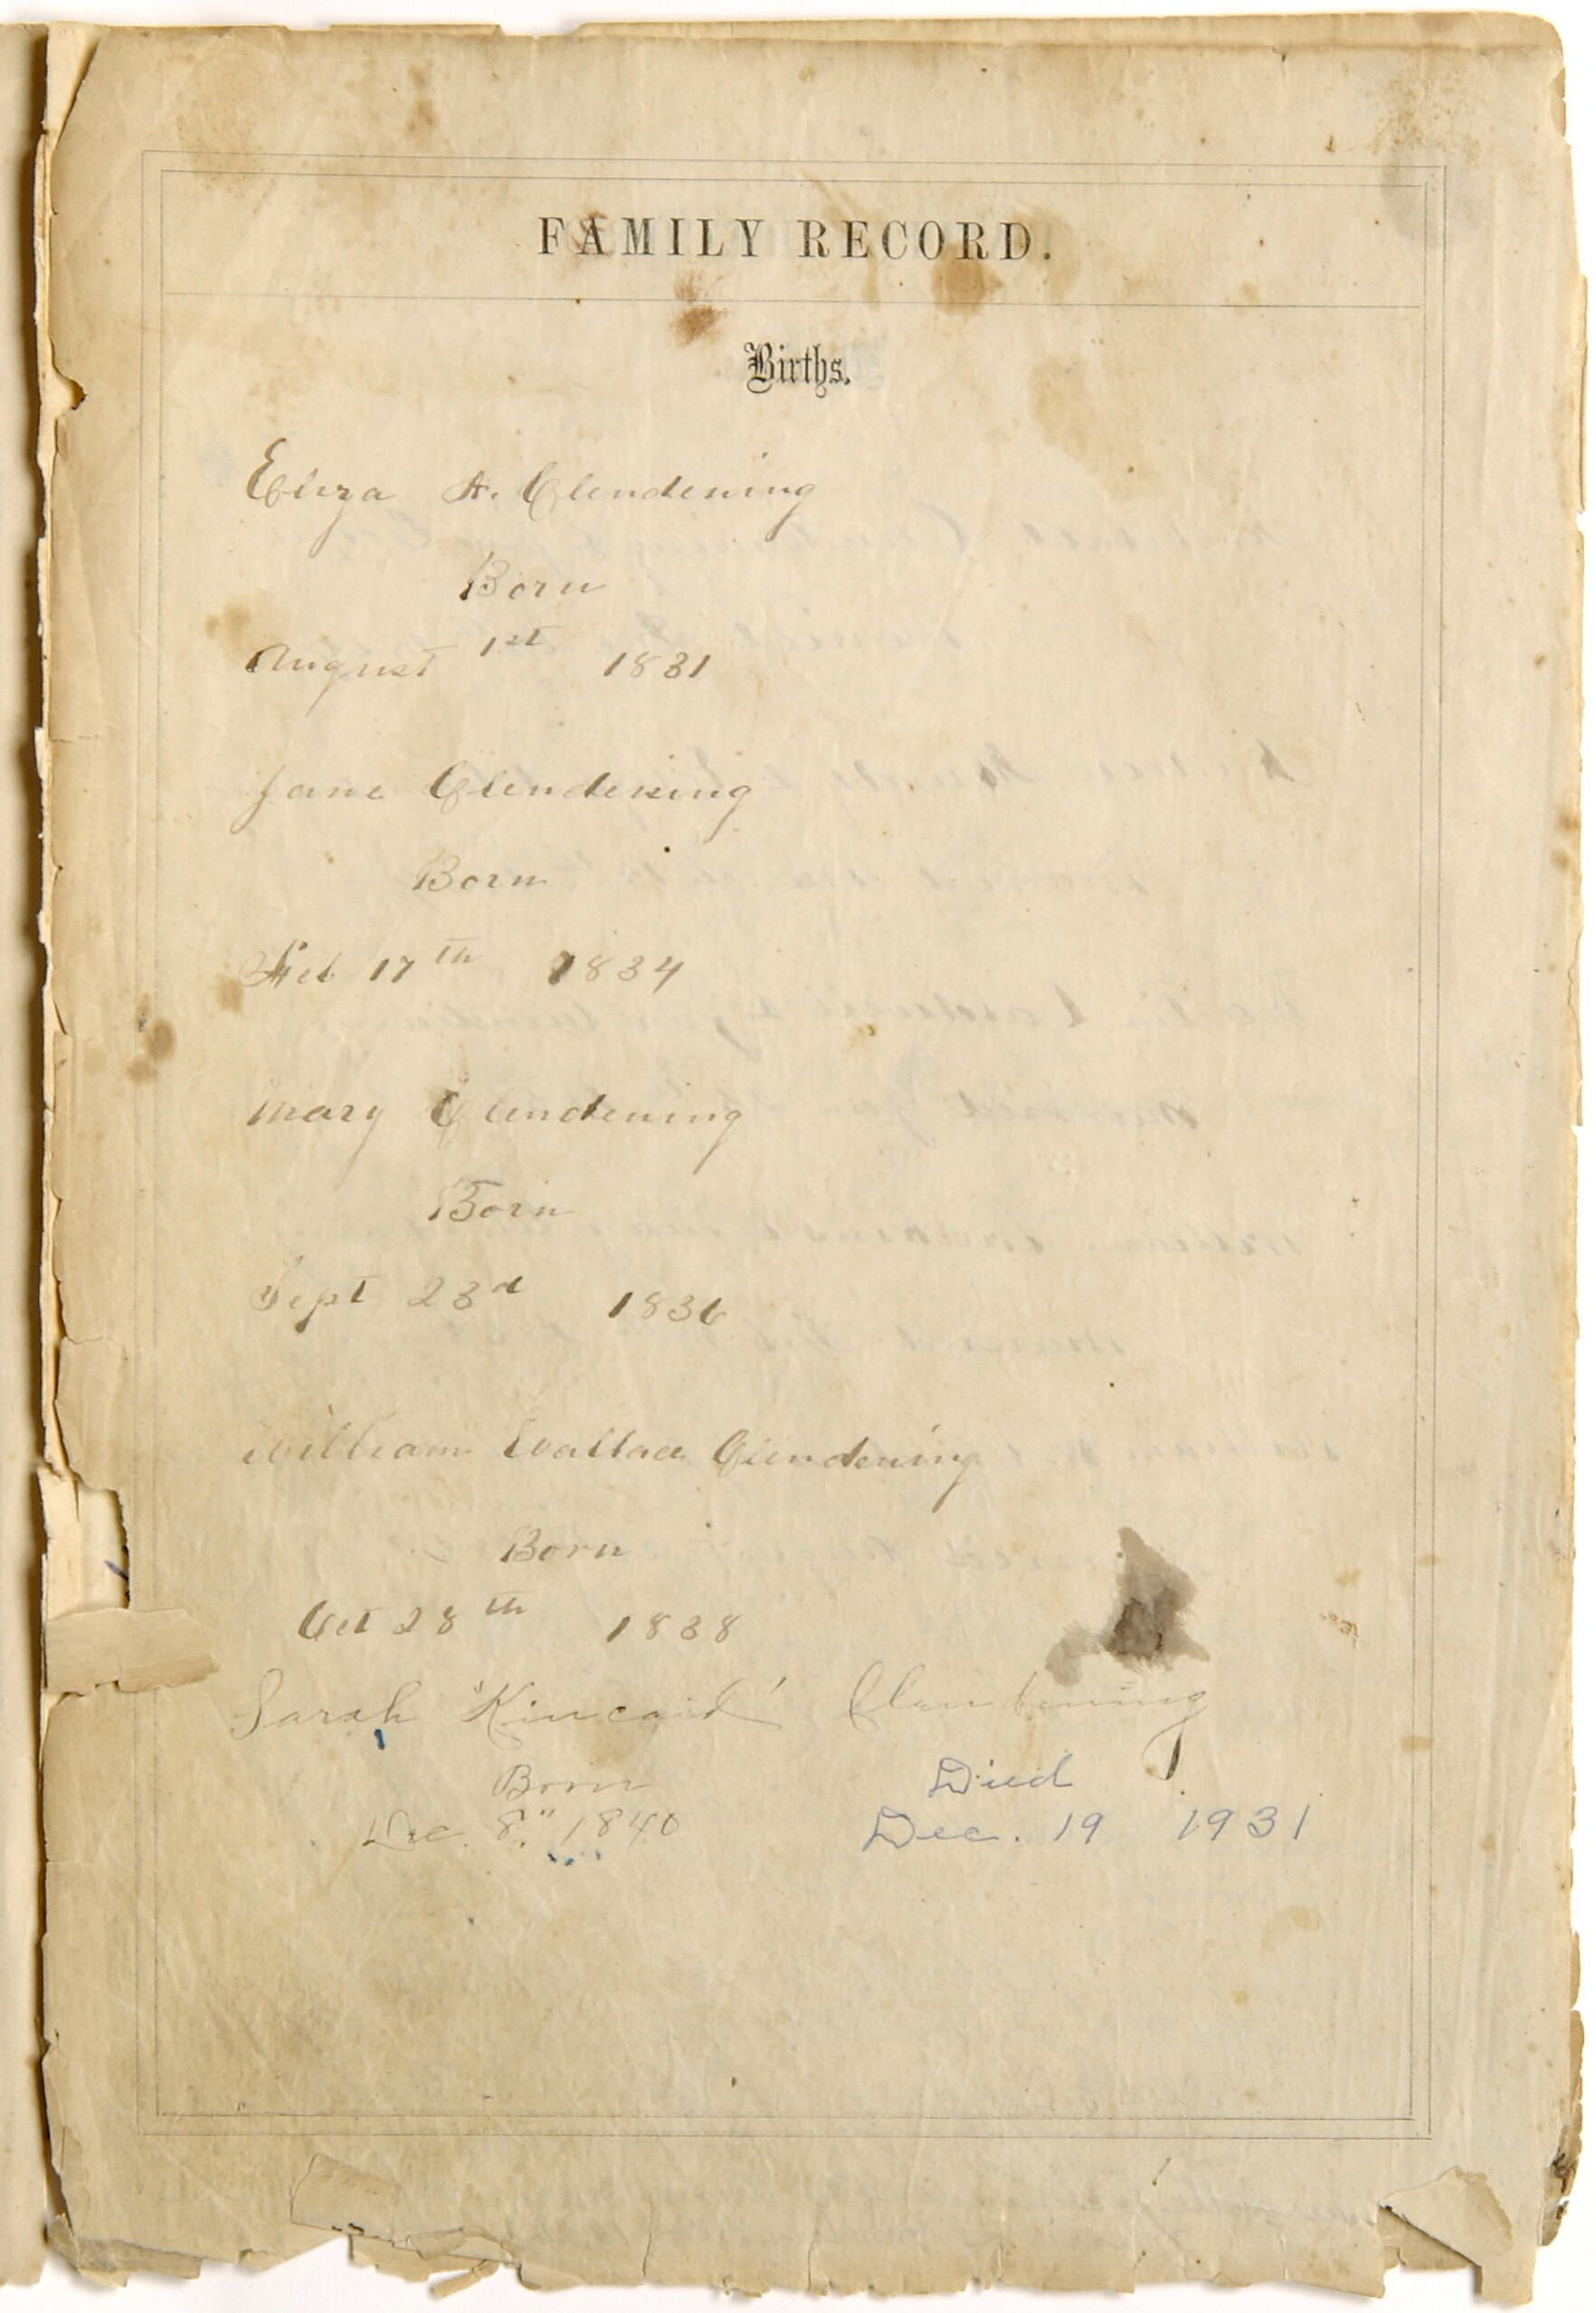 FAMILY RECORD.
Births.
Eliza A. Clendening
Born
August 1st 1831
Jane Clendening
Born
Feb 17th 1834
Mary Clendening
Born
Sept 23d 1836
William Wallace Clendening
Born
Oct 28th 1838
Sarah "Kincaid" Clendening
Born Died
Dec. 8" 1840 Dec. 19 1931